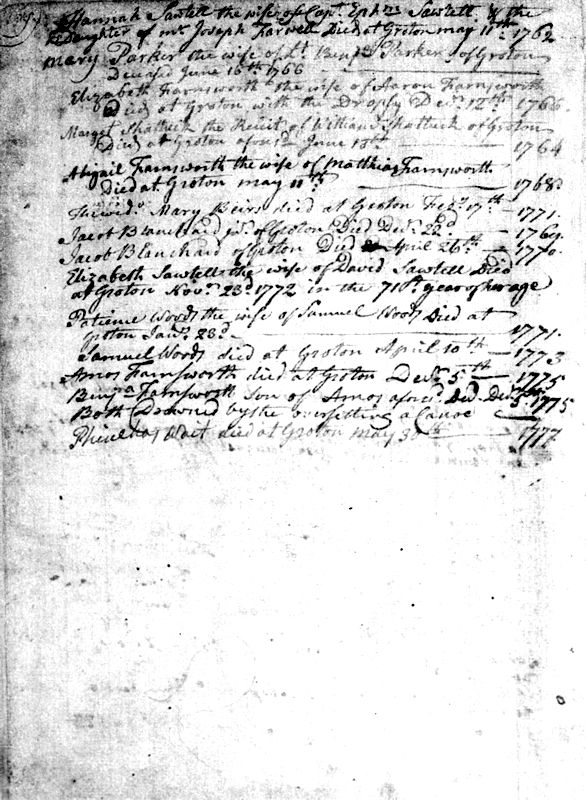 Hannah Sawtell the wife of Capt. Ephm Sawtell & the
Daughter of mr Joseph Farwell Died at Groton may 11th 1762
Mary Parker the wife of Lt Benja Parker of Groton
Deceased June 16th 1766
Elizabeth Farnsworth the wife of Aaron Farnsworth
Died at Groton with the Dropsy Decr 12th 1766
Margt Shattuck the Relict of William Shattuck of Groton
Died at Groton aforesd June 1764
Abigail Farnsworth the wife of Matthias Farnsworth
Died at Groton may 11th 1768
The wido Mary died at Groton Febr 17th 1771
Jacob Blanchard junr of Groton Died Decr 22d 1769
Jacob Blanchard of Groton Died April 26th 1770
Elizabeth Sawtell the wife of David Sawtell Died
at Groton Novr 23d 1772 in the 71st year of her age
Patience Woods the wife of Samuel Woods Died at
Groton Janr 23d 1771
Samuel Woods died at Groton April 10th 1773
Amos Farnsworth died at Groton Decr 5th 1775
Benja Farnsworth Son of Amos aforesd Died Decr 5th 1775
Both Drowned by the oversetting a Canoe
Phinehas Wait died at Groton may 30th 1777